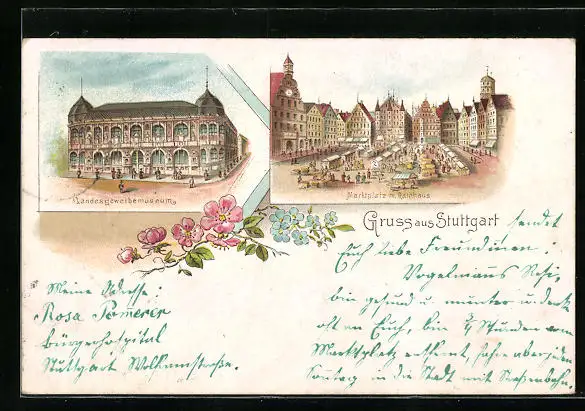 Landesgewerbemuseum
Marktplatz m. Rathaus
Gruss aus Stuttgart sendet
Euch liebe Freundinen:
Vogelmanns Rosi,
bin gesund u. munter u. denk
oft an Euch, bin 3/4 Stunden vom
Marktplatz entfernt, fahre aber jeden
Sonntag in die Stadt mit Straßenbahn.
Meine Adresse:
Rosa
Bürgerhospital
Stuttgart Wolframstraße.